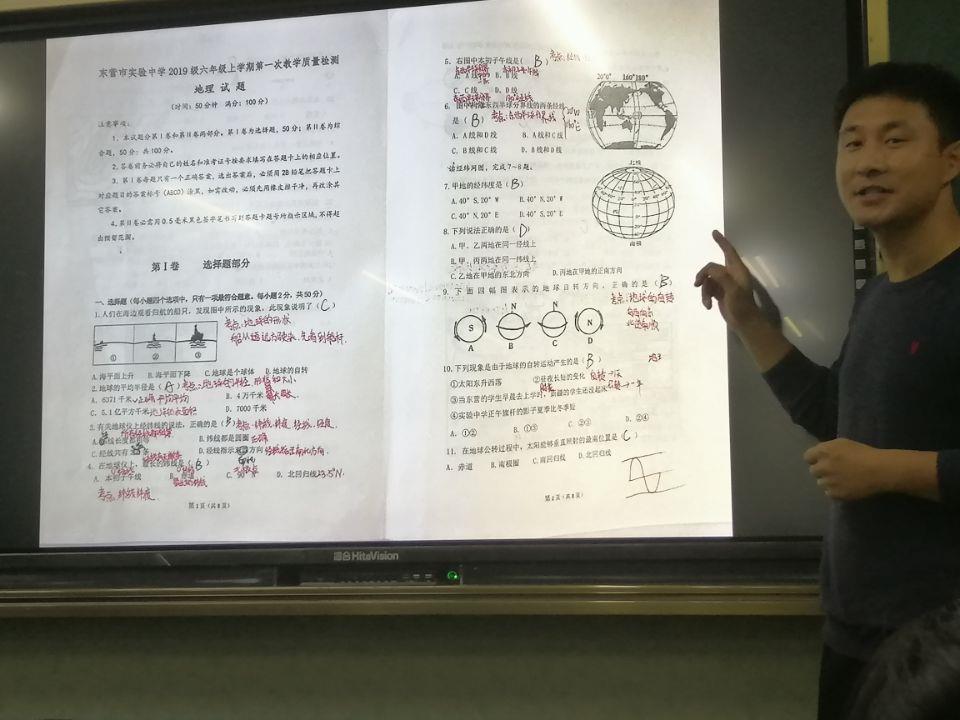 东营市实验中学2019级六年级上学期第一次教学质量检测
地理试题
(时间:50分钟 满分:100分)
注意事项:
1、本试题分第Ⅰ卷和第Ⅱ卷两部分,第Ⅰ卷为选择题,50分;第Ⅱ卷为综
合题,50分;共100分。
2、答卷前务必将自己的姓名和准考证号按要求填写在答题卡上的相应位置。
3、第Ⅰ卷每题只有一个正确答案,选出答案后,必须用2B铅笔把答题卡上
对应题目的答案标号(ABCD)涂黑,如需改动,必须先用橡皮擦干净,再改涂其
它答案。
4、第Ⅱ卷必需用0.5毫米黑色签字笔书写到答题卡题号所指示区域,不得超
出预留范围。
第Ⅰ卷 选择题部分
一、选择题(每小题四个选项中,只有一项最符合题意。每小题2分,共50分)
1.人们在海边观看归航的船只,发现图中所示的现象,此现象说明了(C)
考点:地球的形状
① ② ③
A.海平面上升 B.海平面下降 C.地球是个球体 D.地球的自转
2.地球的平均半径是(A)
A.6371千米 B.4万千米
C.5.1亿平方千米 D.7000千米
3.有关地球仪上经纬线的说法,正确的是(B)
B.纬线都是圆圈
4.在地球仪上,最长的纬线是(B)
A.本初子午线 B.赤道 D.北回归线 23.5°N
考点:纬线纬度
第1页(共8页)
5.右图中本初子午线是(B)
A.A线 B.B线
C.C线 D.D线
是(B)
A.A线和D线 B.A线和C线
C.B线和C线 D.B线和D线
20°0° 160°180°
读经纬网图,完成7~8题。
7.甲地的经纬度是(B)
A.40°S,20°W B.40°N,20°W
C.40°N,20°E D.40°S,20°E
北极
南极
8.下列说法正确的是(D)
A.甲、乙两地在同一经线上
B.甲、丙两地在同一纬线上
C.乙地在甲地的东北方向 D.丙地在甲地的正南方向
9.下面四幅图表示的地球自转方向,正确的是(B)
考点:地球的自转
S N N N
A B C D
10.下列现象是由于地球的自转运动产生的是(B)
①太阳东升西落 ②昼夜长短的变化
③当东营的学生早晨去上学时,新疆的学生还没起床
④实验中学正午旗杆的影子夏季比冬季短
A.①② B.①③ C.②③ D.②④
11.在地球公转过程中,太阳能够垂直照射的最南位置是(C)
A.赤道 B.南极圈 C.南回归线 D.北回归线
第2页(共8页)
HiteVision